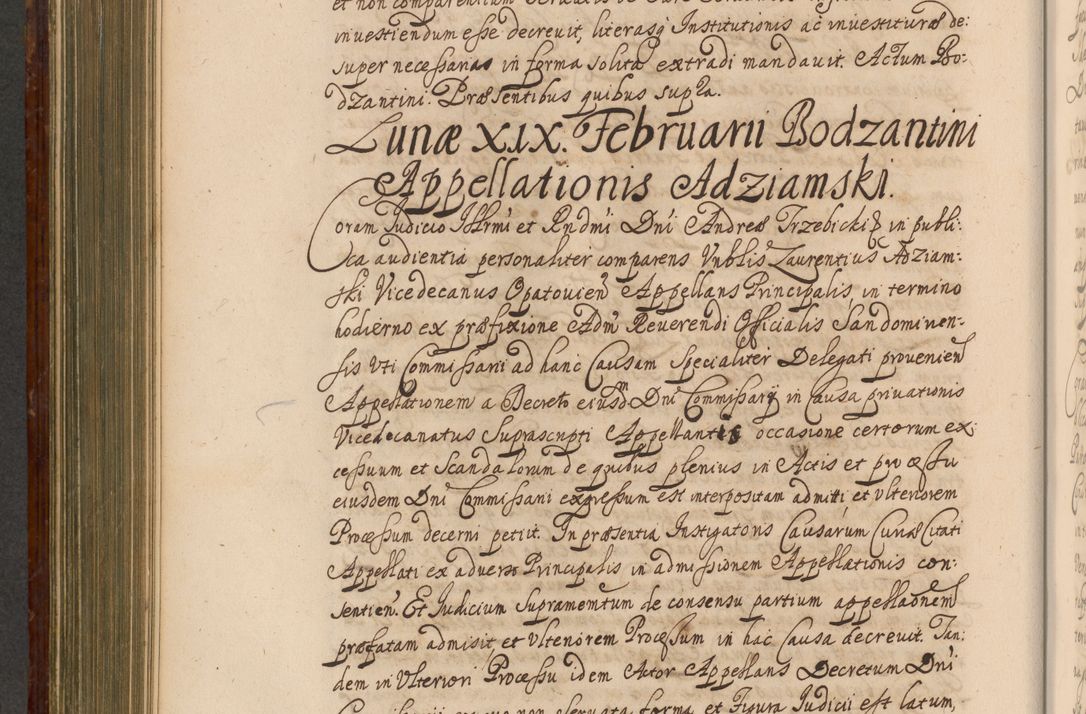 inuestiendum esse decreuit, literasq Institutionis ac inuestituræ de:
super necessarias in forma solita extradi mandauit. Actum Bo-
dzantini. Præsentibus quibus supra.
Lunæ XIX. Februarii Bodzantini
Appellationis Adziamski.
Coram Judicio Illrmi et Rndmi Dni Andreæ Trzebicki in publi:
ca audientia personaliter comparens Vnblis Laurentius Adziam:
ski Vicedecanus Opatouien Appellans Principalis, in termino
hodierno ex præfixione Adm Reuerendi Officialis Sandomirien-
sis vti Commissarii ad hanc Causam Specialiter Delegati prouenien
Appellationem a Decreto eiusdm Dni Commissarij in Causa priuationis
Vicedecanatus Suprascripti Appellantis occasione certorum ex:
cessuum et Scandalorum de quibus plenius in Actis et processu
eiusdem Dni Commissarii expressum est interpositam admitti et vlteriorem
Processum decerni petiit. In præsentia Instigatoris Causarum Curiæ Citati
Appellati ex aduerso Principalis in admissionem Appellationis con-
sentien. Et Judicium Supramemtum de consensu partium appellaonem
præfatam admisit et vlteriorem Processum in hac Causa decreuit. Tan:
dem in Vlteriori Processu idem Actor Appellans Decretum Dni
non seruata forma et Figura Judicii est latum,